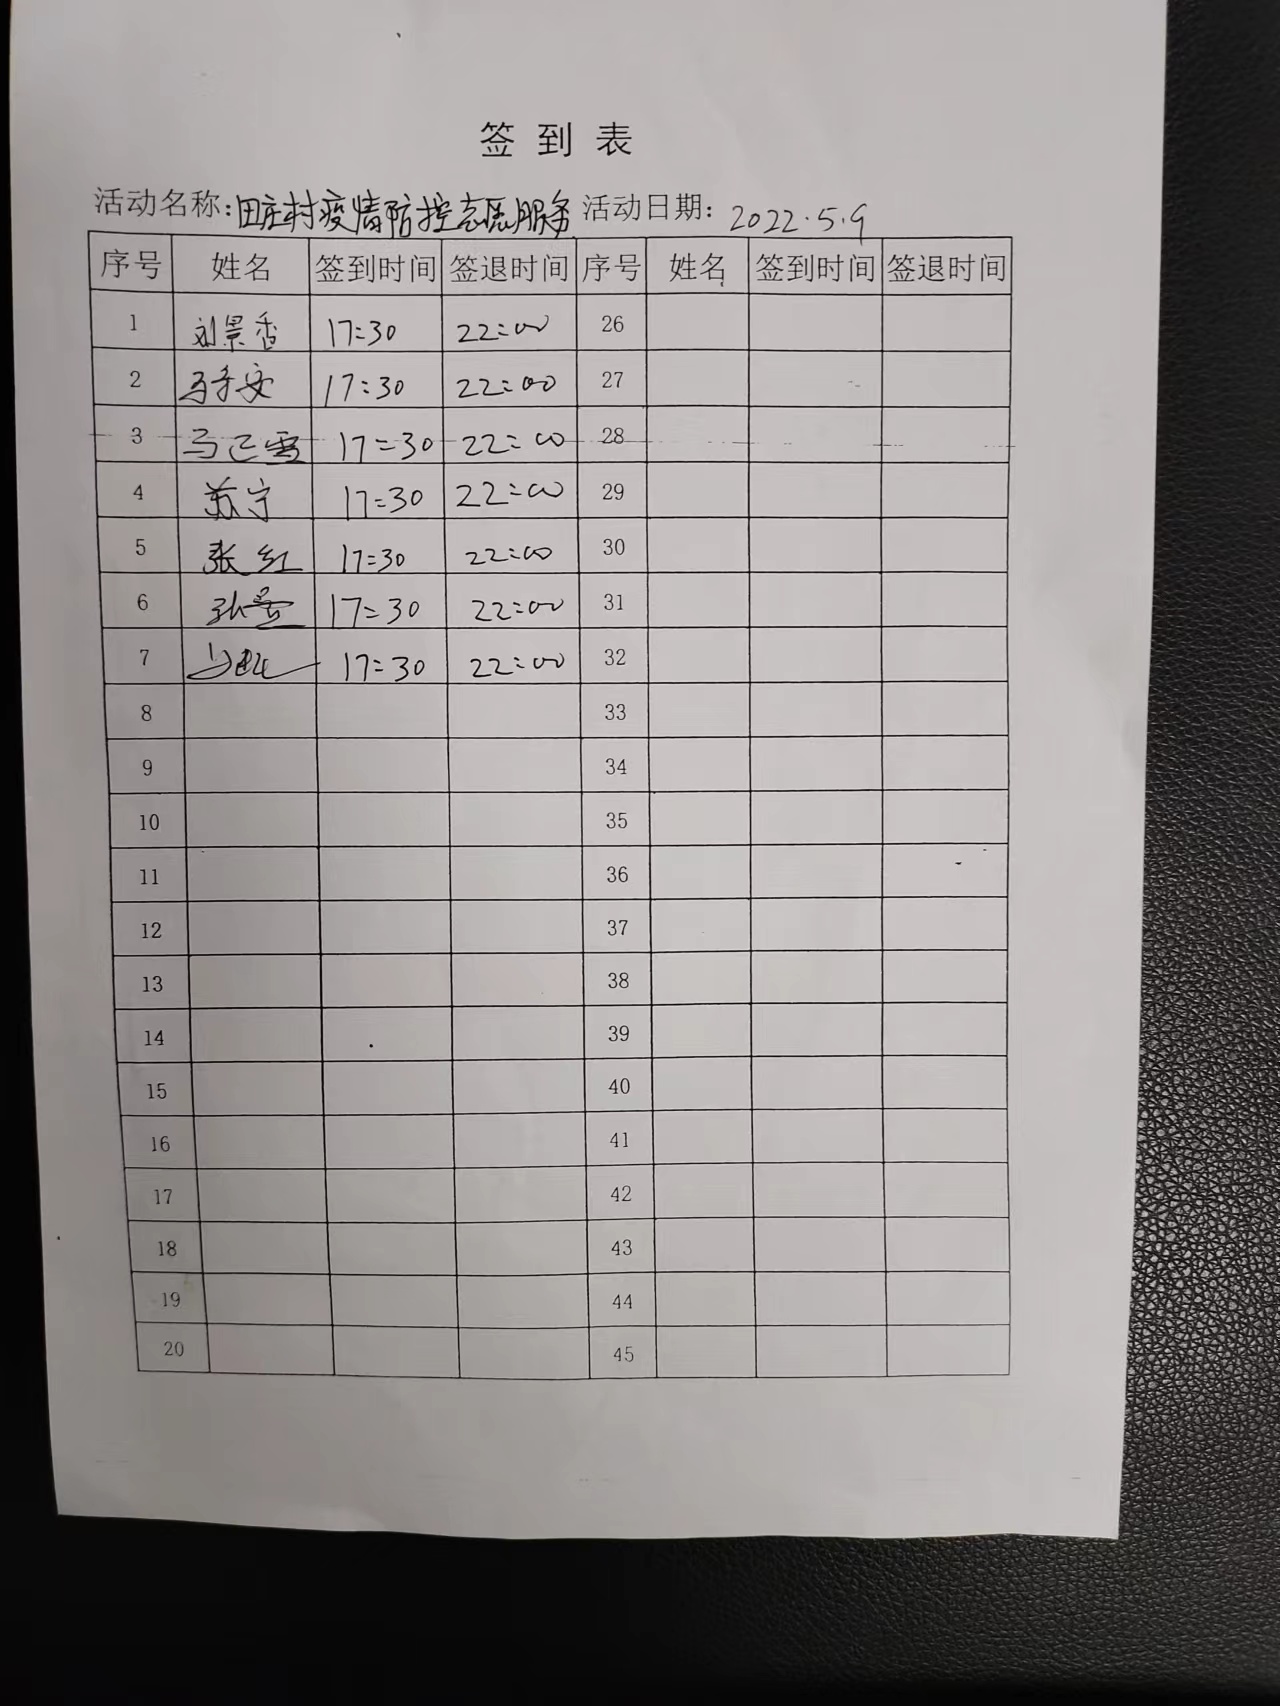 签到表
活动名称:田庄村疫情防控志愿服务 活动日期: 2022.5.9
序号 姓名 签到时间 签退时间 序号 姓名 签到时间 签退时间
1 刘景香 17:30 22:00 26
2 17:30 22:00 27
3 17:30 22:00 28
4 苏宁 17:30 22:00 29
5 张红 17:30 22:00 30
6 17:30 22:00 31
7 17:30 22:00 32
8 33
9 34
10 35
11 36
12 37
13 38
14 39
15 40
16 41
17 42
18 43
19 44
20 45